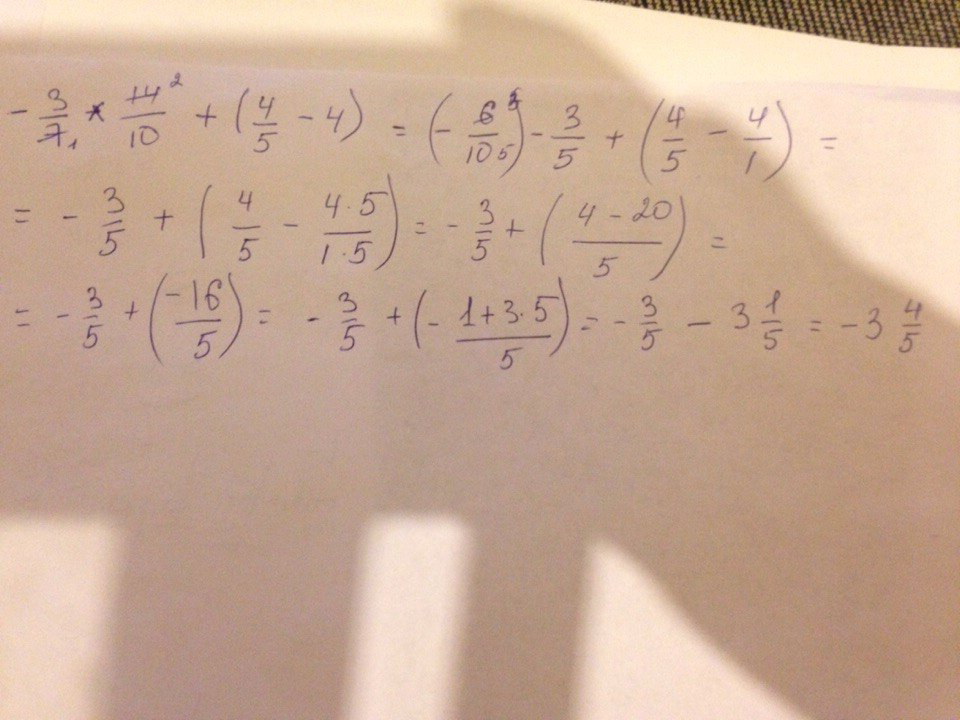 - 3/7₁ * 14²/10 + (4/5 - 4) = (- 6³/10₅) - 3/5 + (4/5 - 4/1) =
= - 3/5 + (4/5 - 4·5/1·5) = - 3/5 + (4 - 20/5) =
= - 3/5 + (-16/5) = - 3/5 + (- 1+3·5/5) = - 3/5 - 3 1/5 = -3 4/5